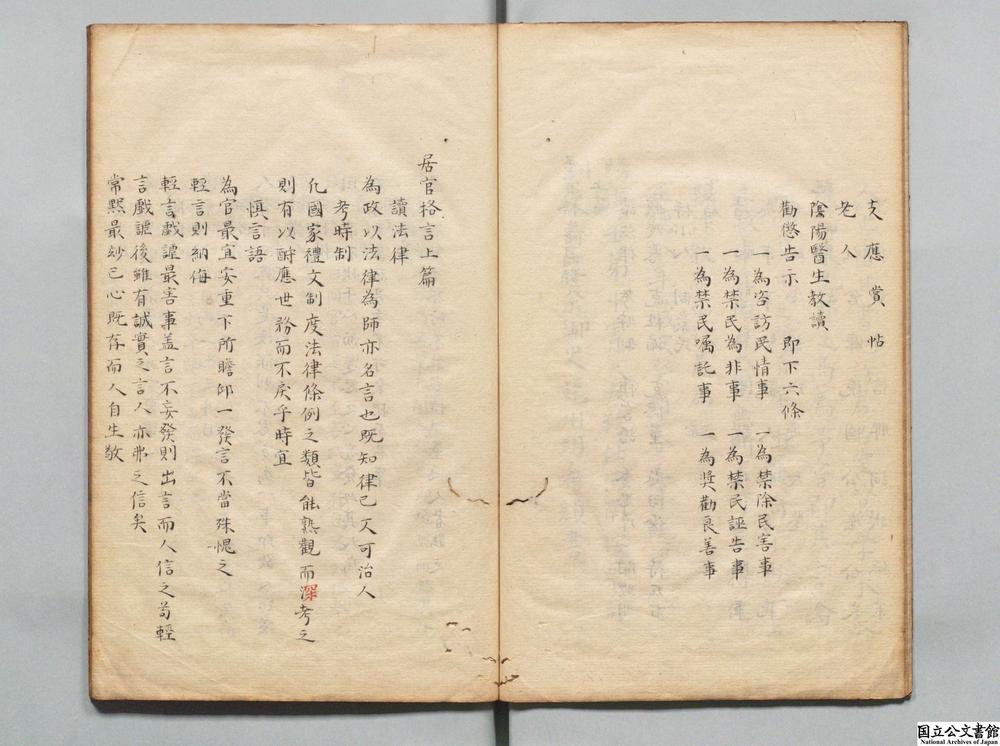 支應賞帖
老人
陰陽醫生教讀
勸懲告示　即下六條
一為咨訪民情事　一為禁除民害事
一為禁民為非事　一為禁民誣告事
一為禁民嘱託事　一為奬勸良善事
居官格言上篇
讀法律
為政以法律為師亦名言也既知律已又可治人
考時制
凡國家禮文制度法律條例之類皆能熟觀而深考之
則有以酧應世務而不戾乎時宜
慎言語
為官最宜安重下所瞻卬一發言不當殊愧之
輕言則納侮
輕言戲謔最害事盖言不妄發則出言而人信之苟輕
言戲謔後雖有誠實之言人亦弗之信矣
常黙最妙已心既存而人自生敬
国立公文書館
National Archives of Japan